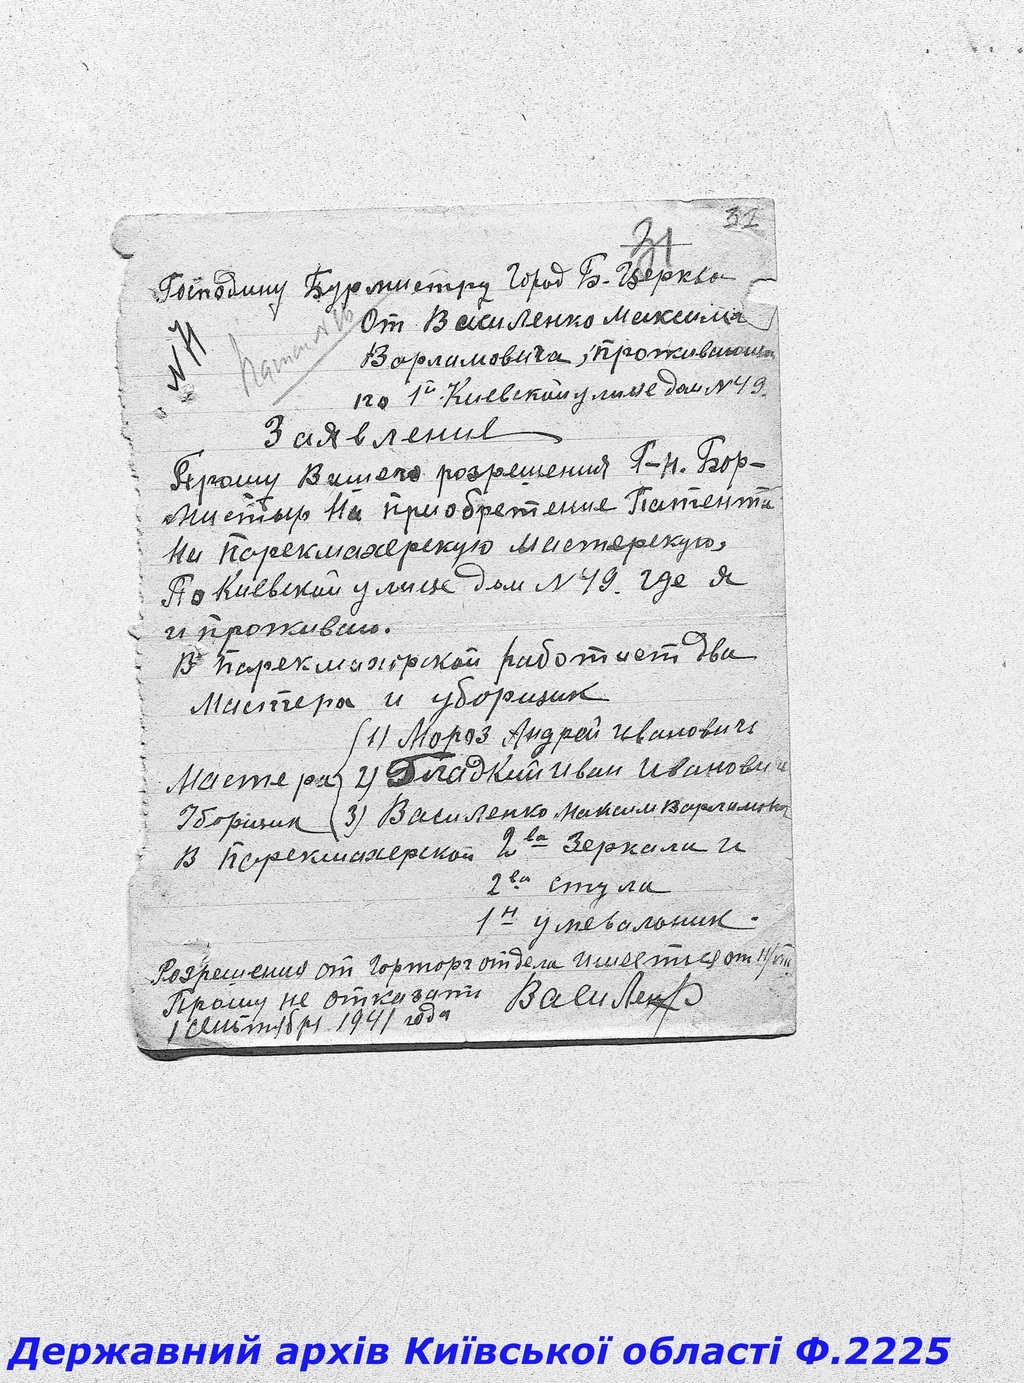 31
31
Господину Бурмистру Город Б-Церкво
От Василенко Максима
Варламовича, проживающи
по 1й Киевской улице дом N49.
N 11
Патент N 16
Заявление
Прошу Вашего розрешения Г-н. Бор-
мистыр На приобретение Патента
На Парекмахерскую мастерскую,
По Киевской улице дом N49. где я
и проживаю.
В Парекмахерской работает два
Мастера и уборщик
1) Мороз Андрей Иванович
Мастера 2) Гладкий Иван Иванович
Уборщик 3) Василенко Максим Варламов
В Парекмахерской 2ва Зеркала и
2ва стула
1н умевальник.
Розрешения от Горторготдела имеется от
Прошу не отказать Василенко
1 сентября 1941 года
Державний архів Київської області Ф.2225